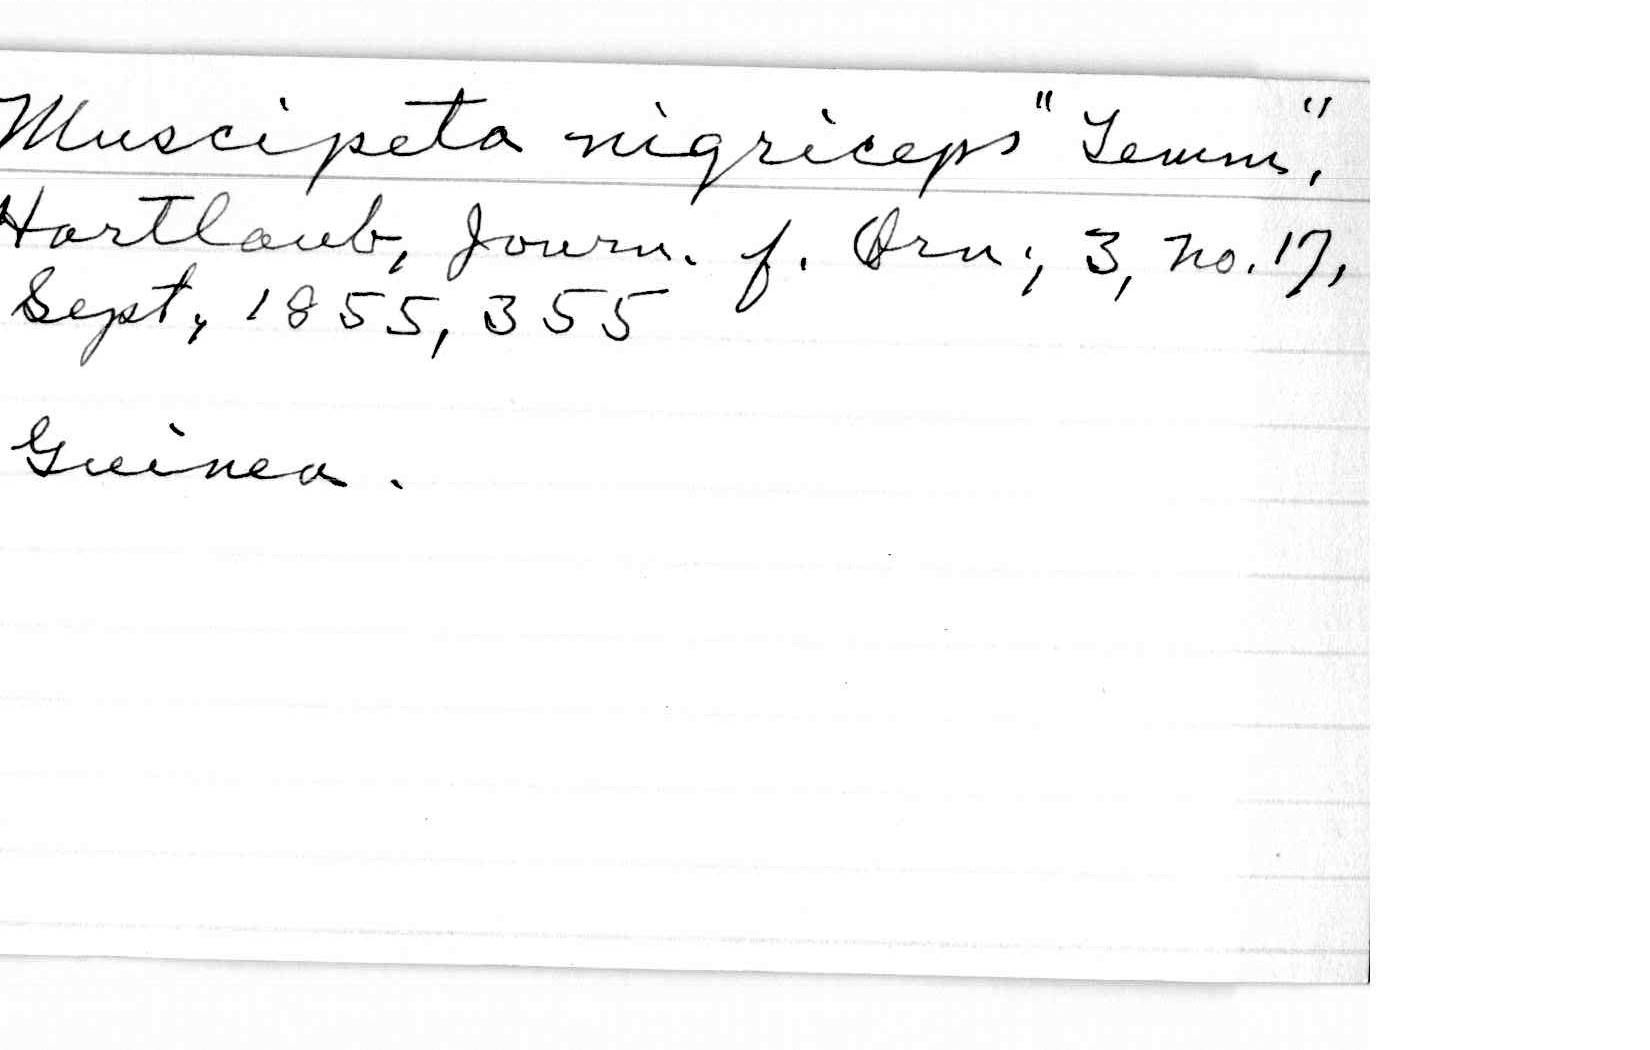 Muscipeta nigriceps "Temm,"
Hartlaub, Journ. f. Orn., 3, no. 17,
Sept, 1855, 355
Guinea.